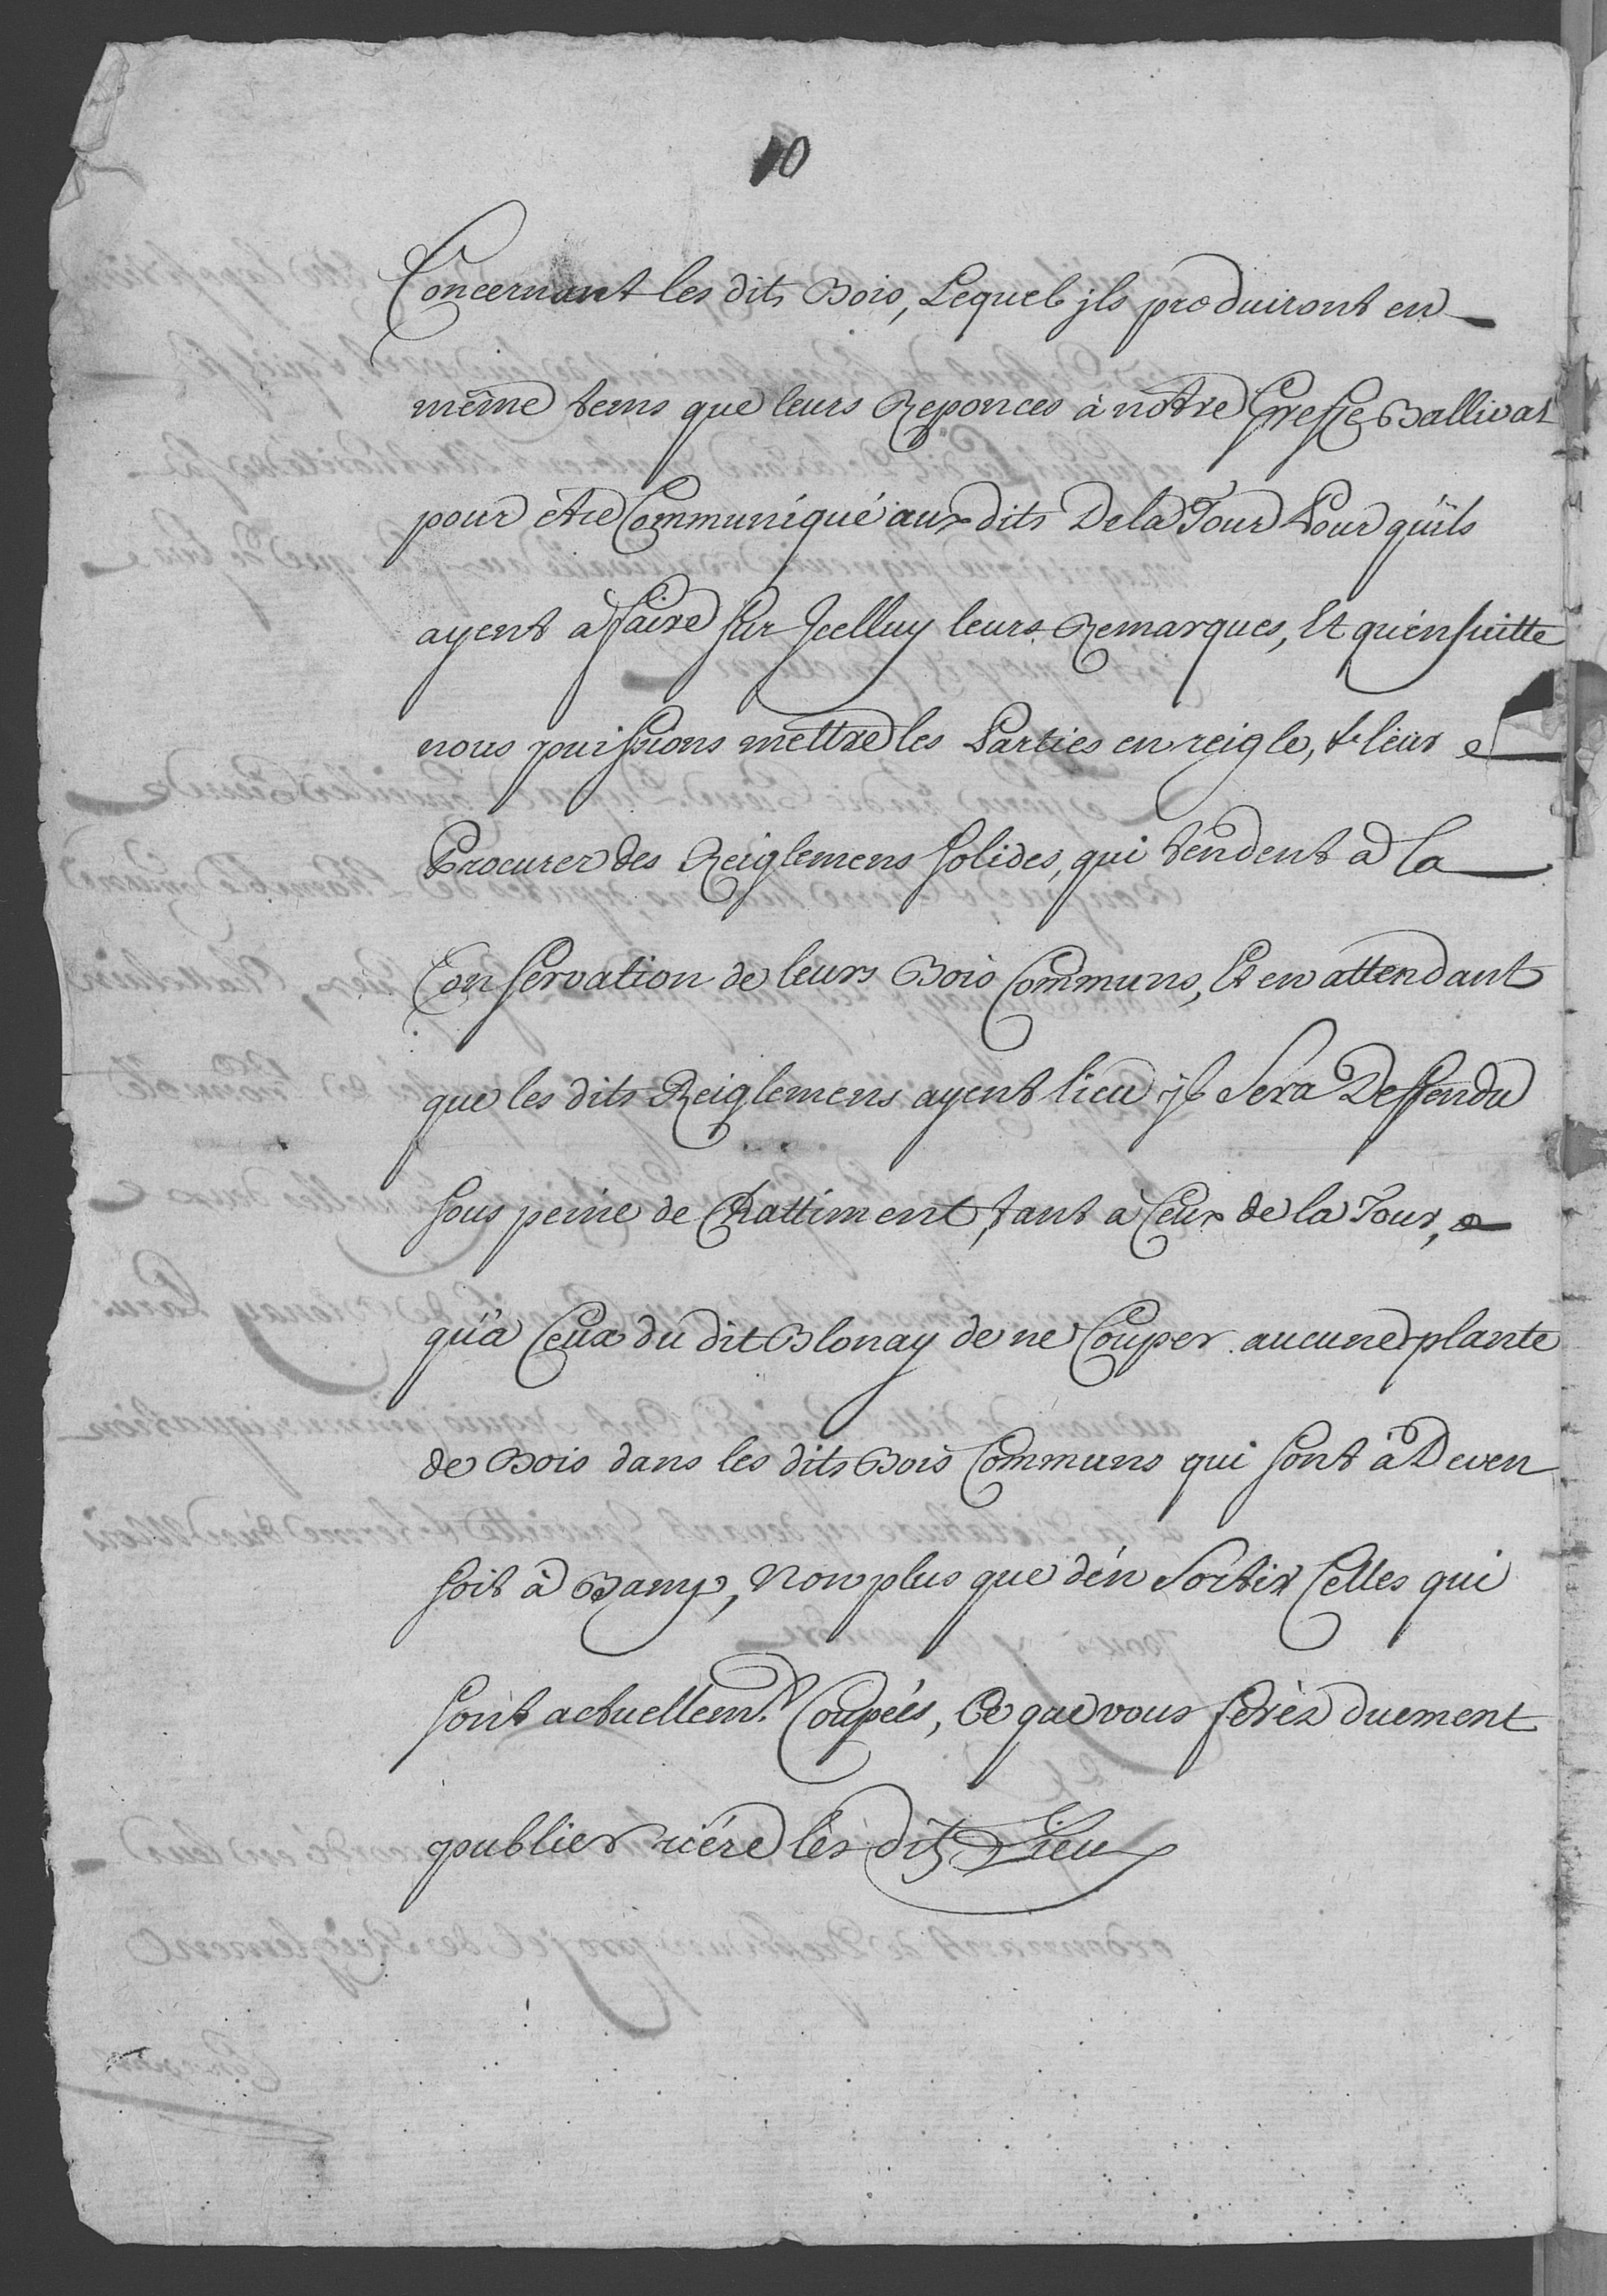 10
Concernant les dits Bois, Lequel jls produiront en
même tems que leurs Reponces à nôtre Greffe Ballival
pour être Communiqué aux dits De la Tour Pour qu'ils
ayent à faire sur Jcelluy leurs Remarques, Et qu'ensuitte
nous puissions mettre les Parties en reigle, & leur
Procurer des Reiglemens solides, qui tendent à la
Conservation de leurs Bois Communs, Et en attendant
que les dits Reiglemens ayent lieu jl Sera Deffendu
sous peine de Chattiment, tant a Ceux de la Tour,
qu'a Ceux du dit Blonay de ne Couper aucune plante
de Bois dans les dits Bois Communs qui sont à Deven
soit à Bamp, Non plus que d'én Sortir Celles qui
sont actuellemt. Coupées, Ce que vous ferèz duement
publier riére lés dits Lieux